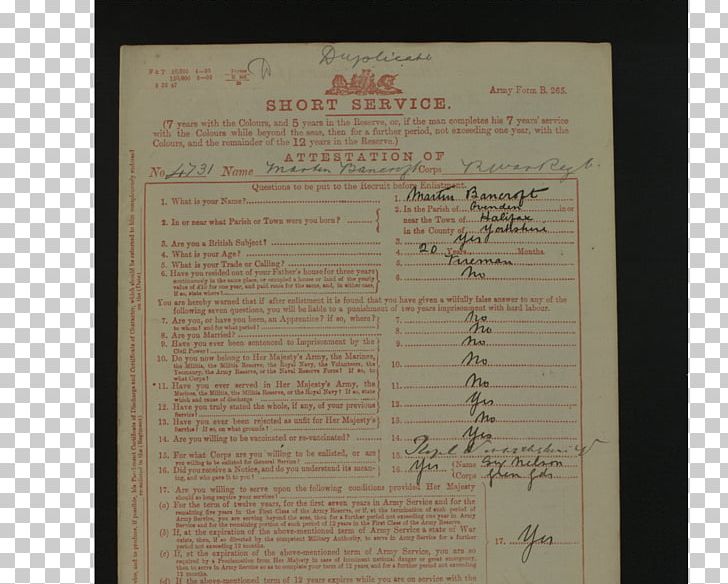 Duplicate
SHORT SERVICE.
Army Form B. 265.
(7 years with the Colours, and 5 years in the Reserve, or, if the man completes his 7 years' service
with the Colours while beyond the seas, then for a further period, not exceeding one year, with the
Colours, and the remainder of the 12 years in the Reserve.)
ATTESTATION OF
No. 4731 Name Martin Bancroft Corps R. War. Reg.
Questions to be put to the Recruit before Enlistment.
1. What is your Name? 1. Martin Bancroft
2. In or near what Parish or Town were you born? 2. In the Parish of Ovenden in or
near the Town of Halifax
in the County of Yorkshire
3. Are you a British Subject? 3. Yes
4. What is your Age? 4. 20 Years, Months.
5. What is your Trade or Calling? 5. Fireman
6. Have you resided out of your Father's house for three years 6. No
continuously in the same place, or occupied a house or land of the yearly
value of £10 for one year, and paid rates for the same, and, in either case,
if so, state where?
You are hereby warned that if after enlistment it is found that you have given a wilfully false answer to any of the
following seven questions, you will be liable to a punishment of two years imprisonment with hard labour.
7. Are you, or have you been, an Apprentice? If so, where? 7. No
to whom? and for what period?
8. Are you Married? 8. No
9. Have you ever been sentenced to Imprisonment by the 9. No
Civil Power?
10. Do you now belong to Her Majesty's Army, the Marines, 10. No
the Militia, the Militia Reserve, the Royal Navy, the Volunteers, the
Yeomanry, the Army Reserve, or the Naval Reserve Force? If so, to
what Corps?
11. Have you ever served in Her Majesty's Army, the 11. No
Marines, the Militia, the Militia Reserve, or the Royal Navy? If so, state
which and cause of discharge
12. Have you truly stated the whole, if any, of your previous 12. Yes
Service?
13. Have you ever been rejected as unfit for Her Majesty's 13. No
Service? If so, on what grounds?
14. Are you willing to be vaccinated or re-vaccinated? 14. Yes
15. For what Corps are you willing to be enlisted, or are 15. Royal
you willing to be enlisted for General Service?
16. Did you receive a Notice, and do you understand its meaning, 16. Yes Name Nelson
and who gave it to you? Corps Gren Gds
17. Are you willing to serve upon the following conditions provided Her Majesty
should so long require your services?
(a) For the term of twelve years, for the first seven years in Army Service and for the
remaining five years in the First Class of the Army Reserve, or if, at the termination of such period of
Army Service, you are serving beyond the seas, then for a further period not exceeding one year in Army Service
and for the remaining portion of such period of 12 years in the First Class of the Army Reserve.
(b) If, at the expiration of the above-mentioned term of Army Service a state of War 17. Yes
exists, then, if so directed by the competent Military Authority, to serve in Army Service for a further
period not exceeding 12 months.
(c) If, at the expiration of the above-mentioned term of Army Service, you are so
required by a Proclamation from Her Majesty in case of imminent national danger or great emergency,
then to serve or continue to serve in Army Service for a further period not exceeding 12 months.
(d) If the above-mentioned term of 12 years expires while you are on service with the